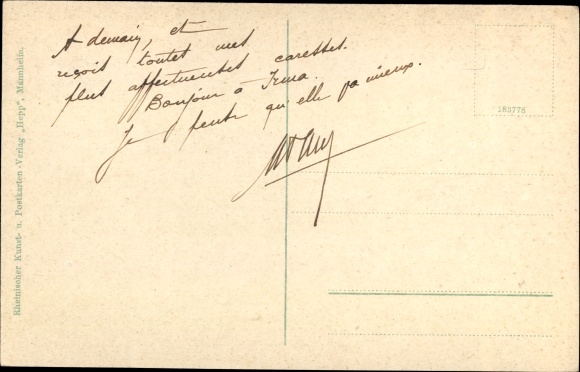 A demain, et
reçois toutes mes
plus affectueuses caresses.
Bonjour à Irma.
Je pense qu'elle va mieux.
183778
Rheinischer Kunst- u. Postkarten-Verlag „Hepp", Mannheim.